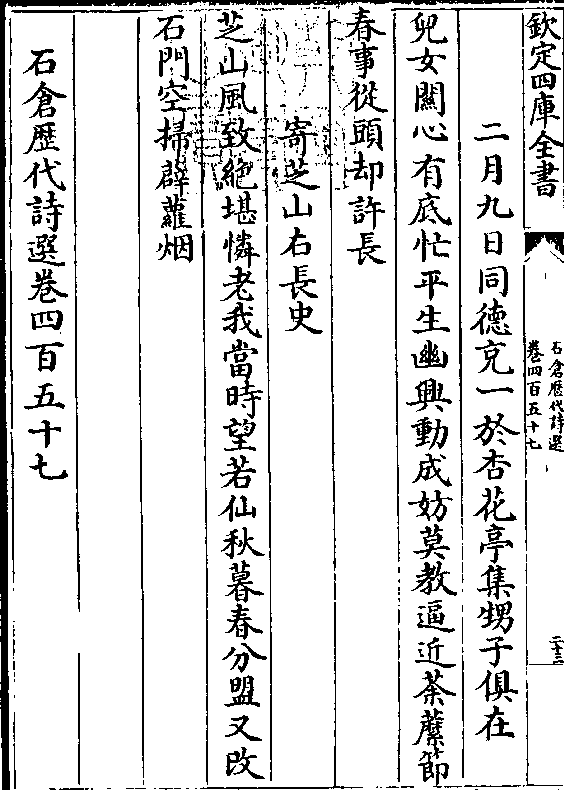 欽定四庫全書
石倉歷代詩選
卷四百五十七
二十三
二月九日同德克一於杏花亭集甥子俱在
兒女關心有底忙平生幽興動成妨莫教逼近荼䕷節
春事從頭却許長
寄芝山右長史
芝山風致絶堪憐老我當時望若仙秋暮春分盟又改
石門空掃薜蘿烟
石倉歷代詩選卷四百五十七